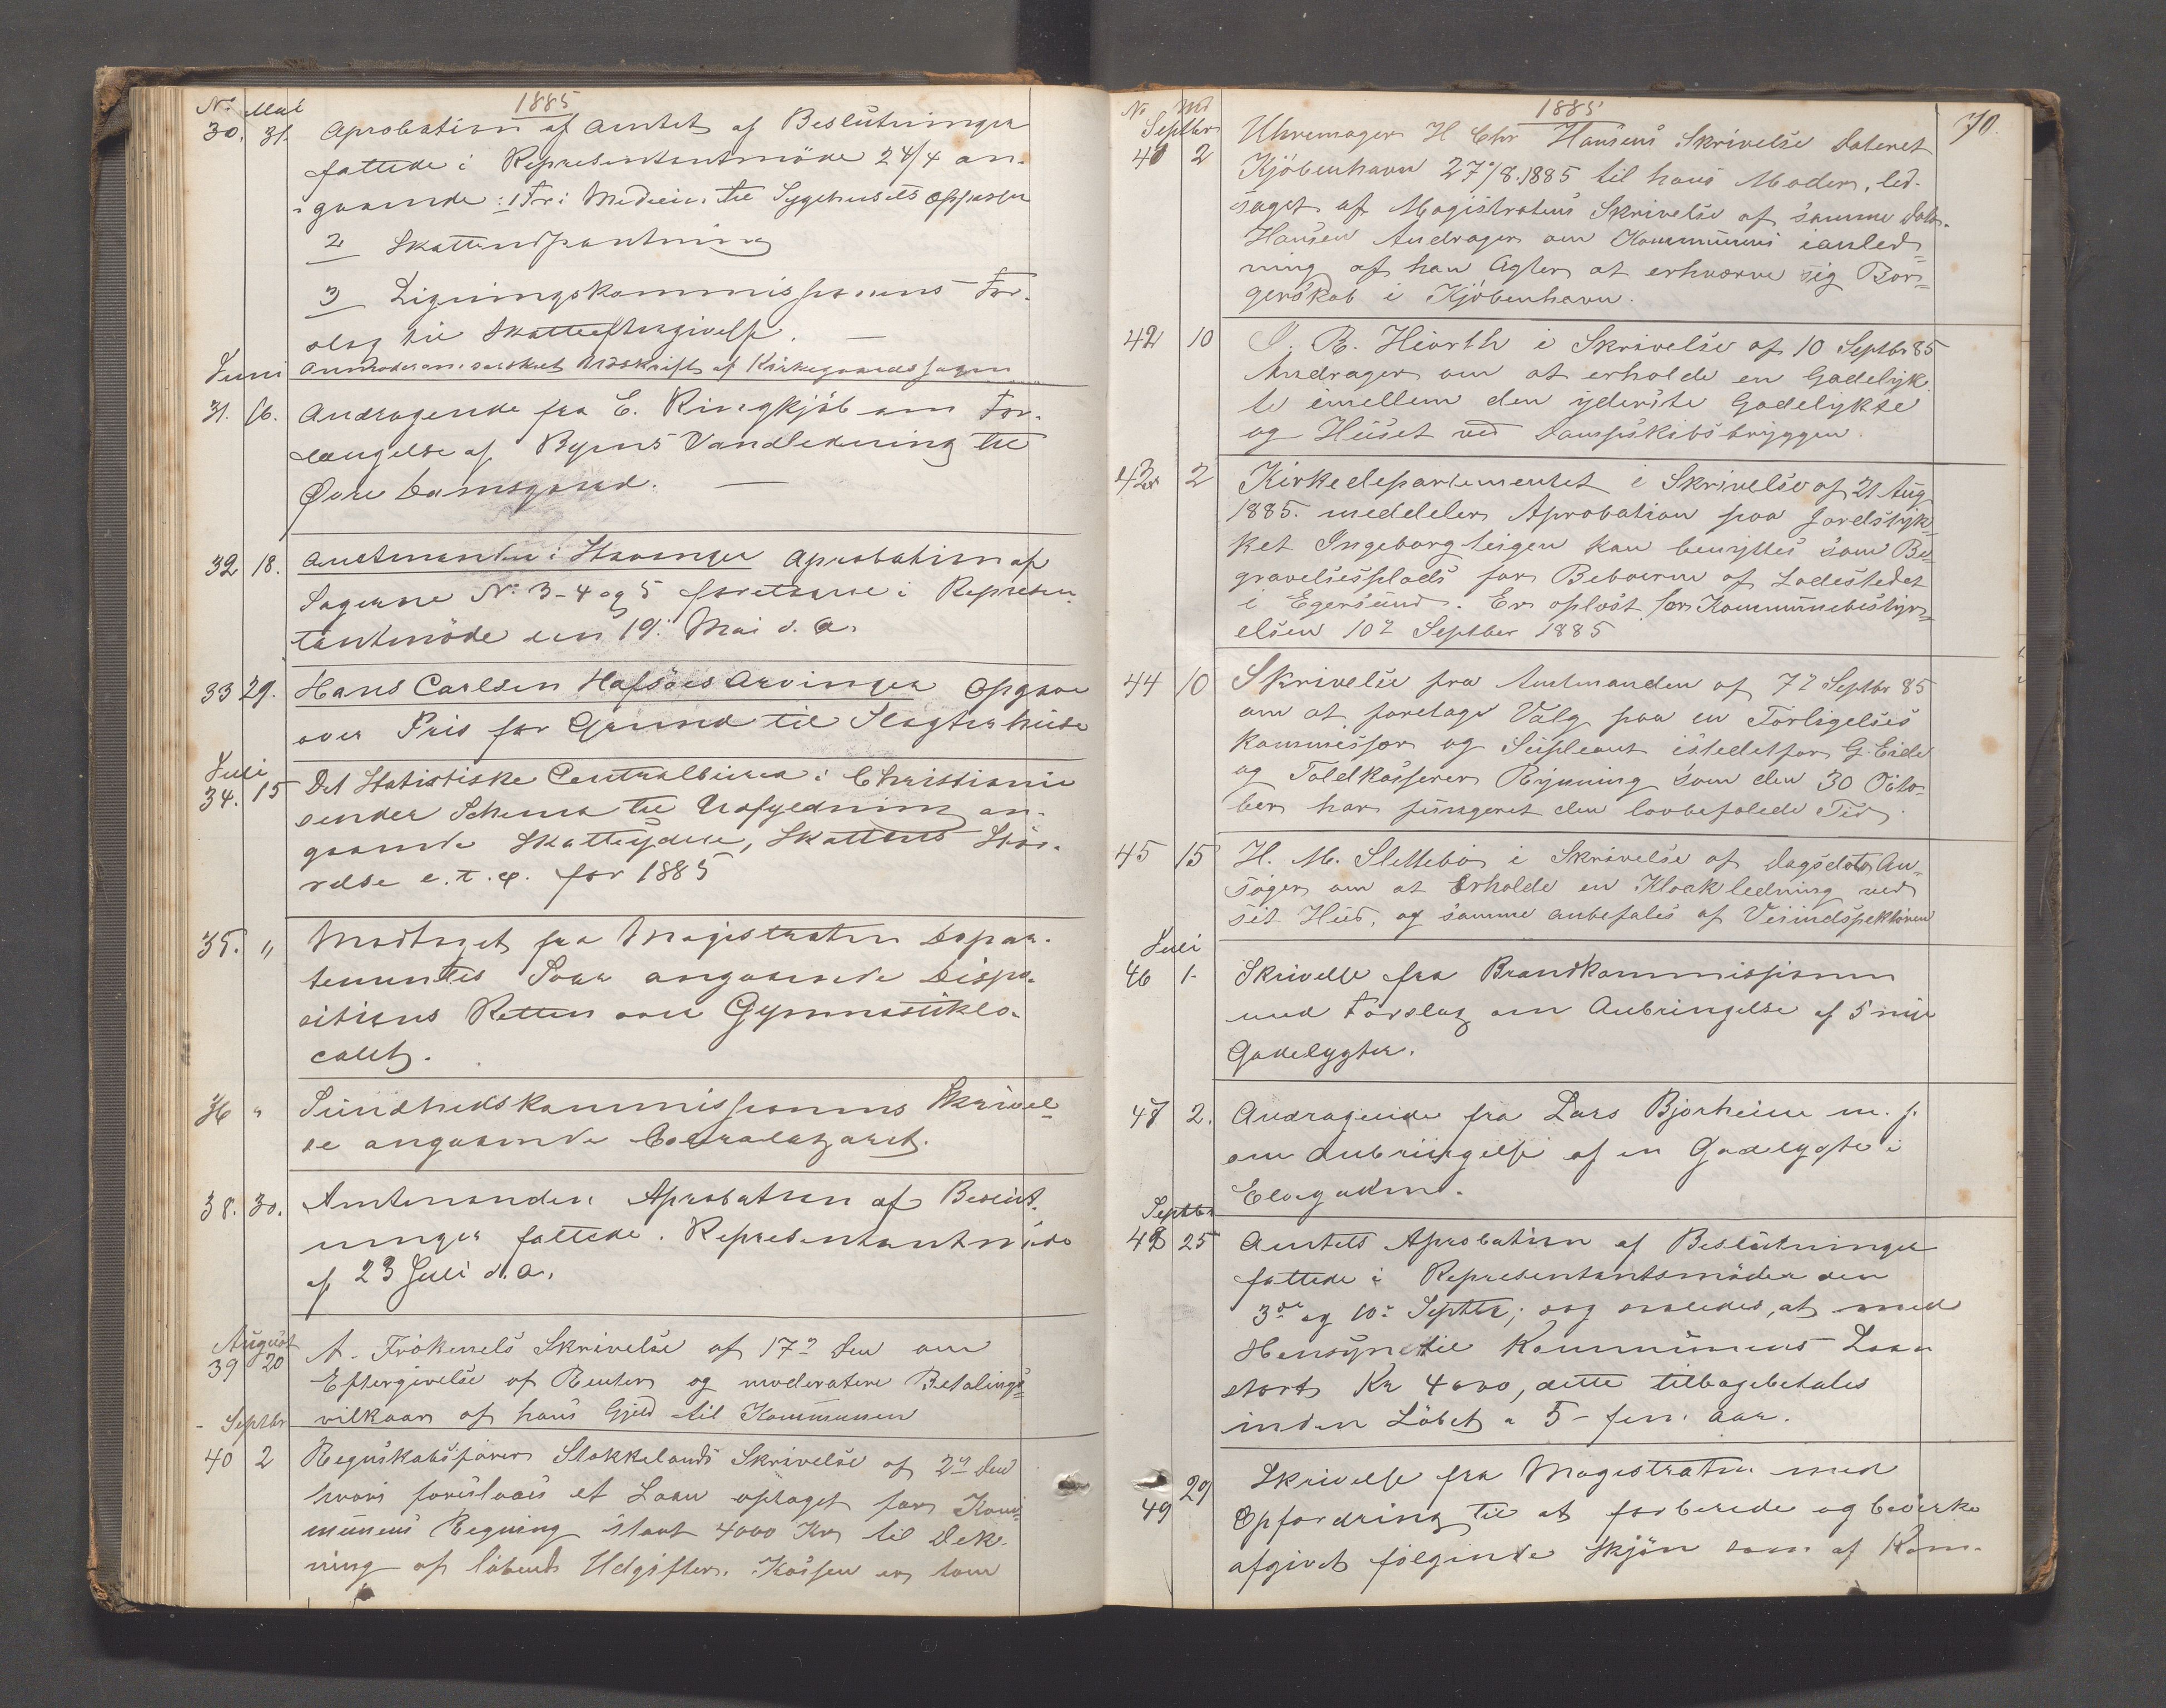 No Mai 1885
30. 31. Aprobation af Amtet af Beslutninger
fattede i Representantmöde 24/4 an-
gaaende: 1 Fri Medicin til Sygehusets
2 Skatteudpantning
3 Ligningskommissionens For-
slag til Skatteeftergivelse. —
Juni særskilt Udskrift af Kirkegaardssagen
31. 16. Andragende fra E. Ringkjöb om For-
længelse af Byens Vandledning til
Övre Damsgaard. —
32 18. Amtmanden i Stavanger Aprobation af
Sagerne No 3-4 og 5 foretagne i Represen-
tantmöde den 19. Mai d. A.
33 29. Hans Carlsen Hafsöes Arvinger Opgave
over Pris for Grund til Slagterhuse
Juli
34. 15 Det Statistiske Centralbureau i Christiania
sender Schema til Udfyldning an-
gaaende Skatteydere, Skattens Stör-
relse e.t.c. for 1885
35. " Modtaget fra Magistraten Depar-
tementets Svar angaaende Dispo-
sitions Retten over Gymnastiklo-
calet.
36 " Sundhedskommissionens Skrivel-
se angaaende Coleralazaret.
38. 30. Amtmanden Aprobation af Beslut-
ninger fattede i Representantmöde
af 23 Juli d.A.
August
39 20 A. Frökenels Skrivelse af 17 den om
Eftergivelse af Renter og moderatere Betalings-
- Septbr vilkaar af hans Gjeld til Kommunen
40 2 Regnskabsförer Stokkelands Skrivelse af 2 den
hvori foreslaaes et Laan optaget for Kom-
munens Regning stort 4000 Kr til Dek-
ning af löbende Udgifter. Kassen er tom
No Md 1885 70.
Septber Uhremager H Chr Hansens Skrivelse dateret
41 2 Kjöbenhavn 27/8.1885 til hans Moder, led-
saget af Magistratens Skrivelse af samme Dato.
Hansen Andrager om Kommunens ianled-
ning af han Agter at erhverve sig Bor-
gerskab i Kjöbenhavn.
42 10 R. Hiorth i Skrivelse af 10 Septbr 85
Andrager om at erholde en Gadelyk-
te imellem den yderste Gadelykte
og Huset ved Dampskibsbryggen.
43 2 Kirkedepartementet i Skrivelse af 21 Aug
1885. meddeler Aprobation paa Jordstyk-
ket Ingeborgteigen kan benyttes som Be-
gravelsesplads for Beboerne af Ladestedet
i Egersund. Er oplæst for Kommunebestyr-
elsen 10 Septber 1885
44 10 Skrivelse fra Amtmanden af 7 Septbr 85
om at foretage Valg paa en Forligelses
kommissær og Supleant istedetfor G. Eide
og Toldkasserer Rynning som den 30 Octo-
ber har fungeret den lovbefalede Tid.
45 15 H. M. Slettebö i Skrivelse af Dagsdato An-
söger om at Erholde en Kloakledning ved
sit Hus, og samme anbefales af Veiindspektören
Juli
46 1. Skrivelse fra Brandkommissionen
med Forslag om Anbringelse af 5 nye
Gadelygter.
47 2. Andragende fra Lars Bjorheim m. fl.
om Anbringelse af en Gadelygte i
Elvegaden.
Septbr
48 25 Amtets Aprobation af Beslutninger
fattede i Representantsmöder den
3de og 10: Septbr; dog saaledes, at med
Hensyn til Kommunens Laan
stort Kr 4000, dette tilbagebetales
inden Löbet a 5 - fem Aar.
49 29 Skrivelse fra Magistraten med
Opfordring til at forberede og bevirke
afgivet fölgende Skjön som af Kom-